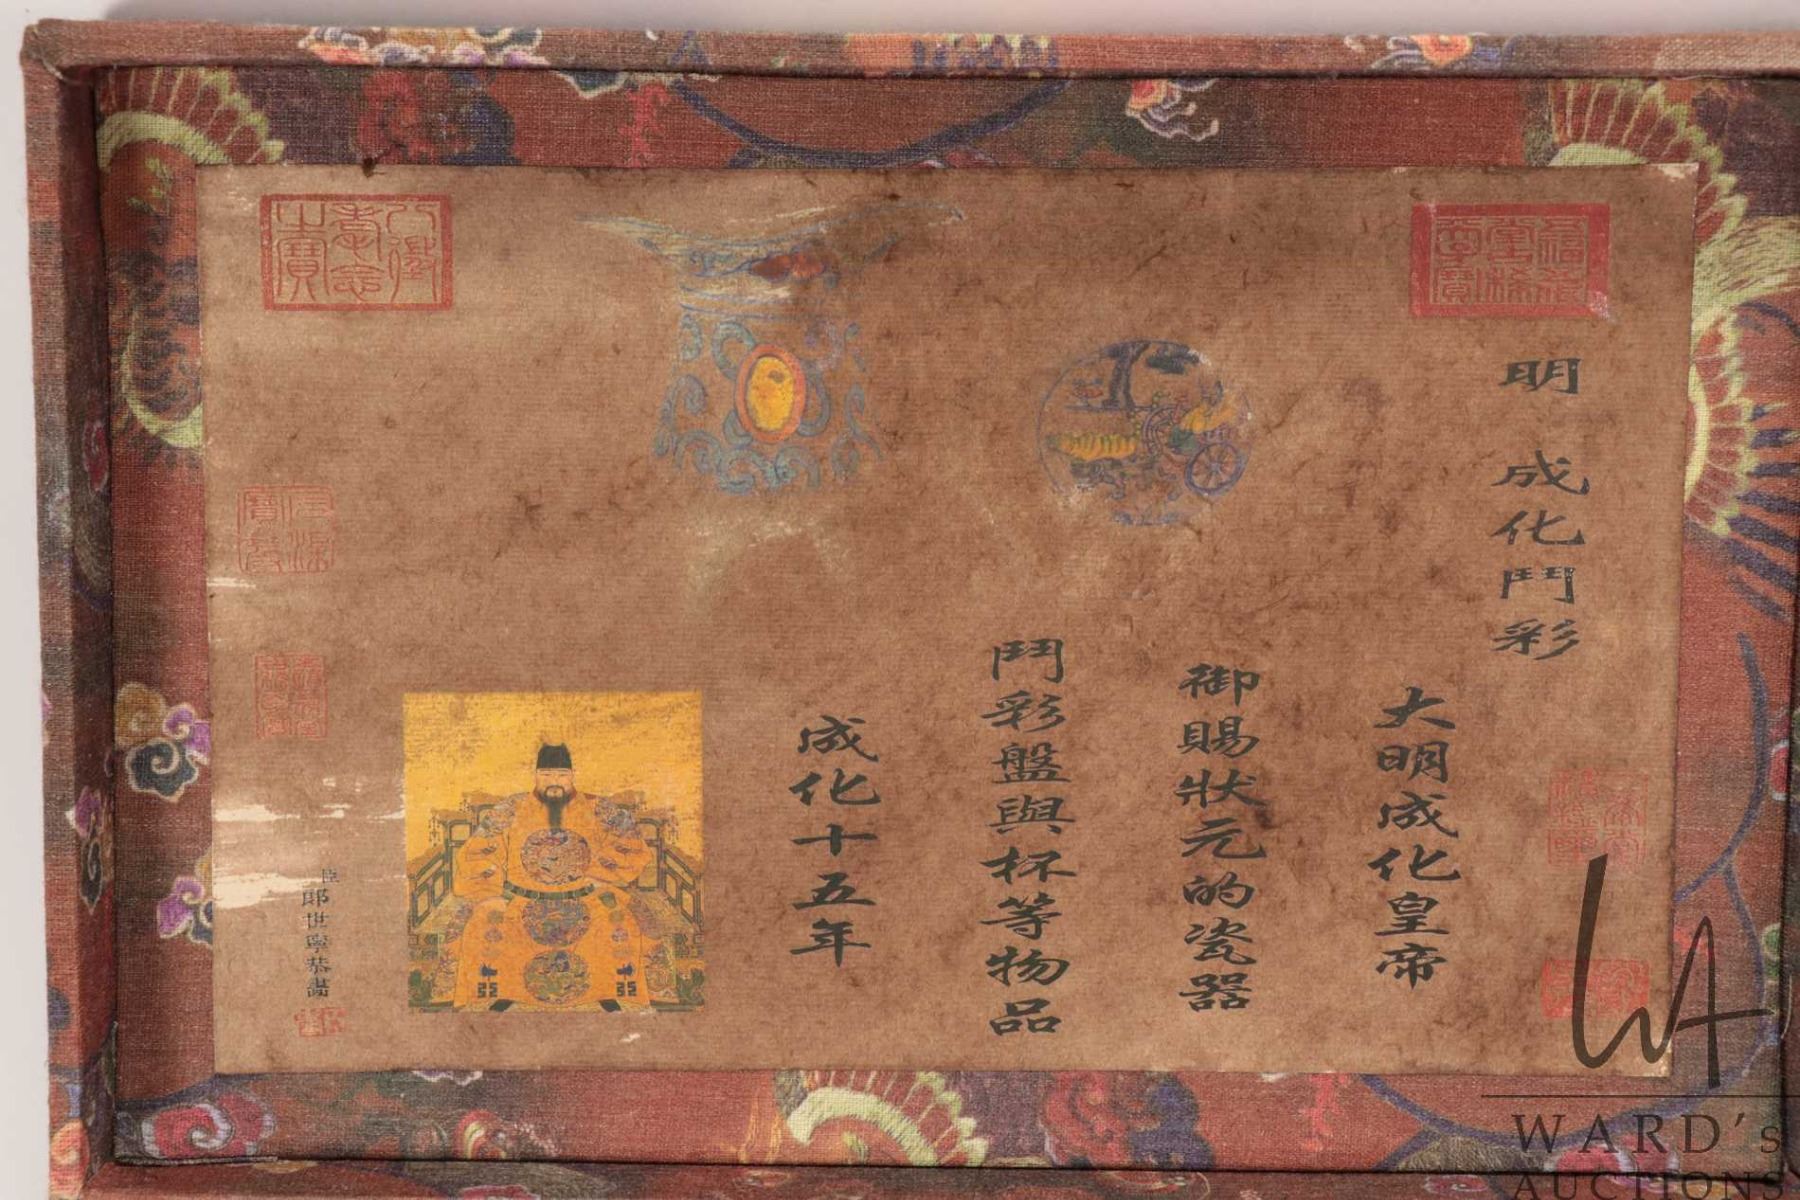 明成化鬥彩
大明成化皇帝
御賜狀元的瓷器
鬥彩盤與杯等物品
成化十五年
臣郎世寧恭畫
八徵耄念之寶
WARD's
AUCTIONS